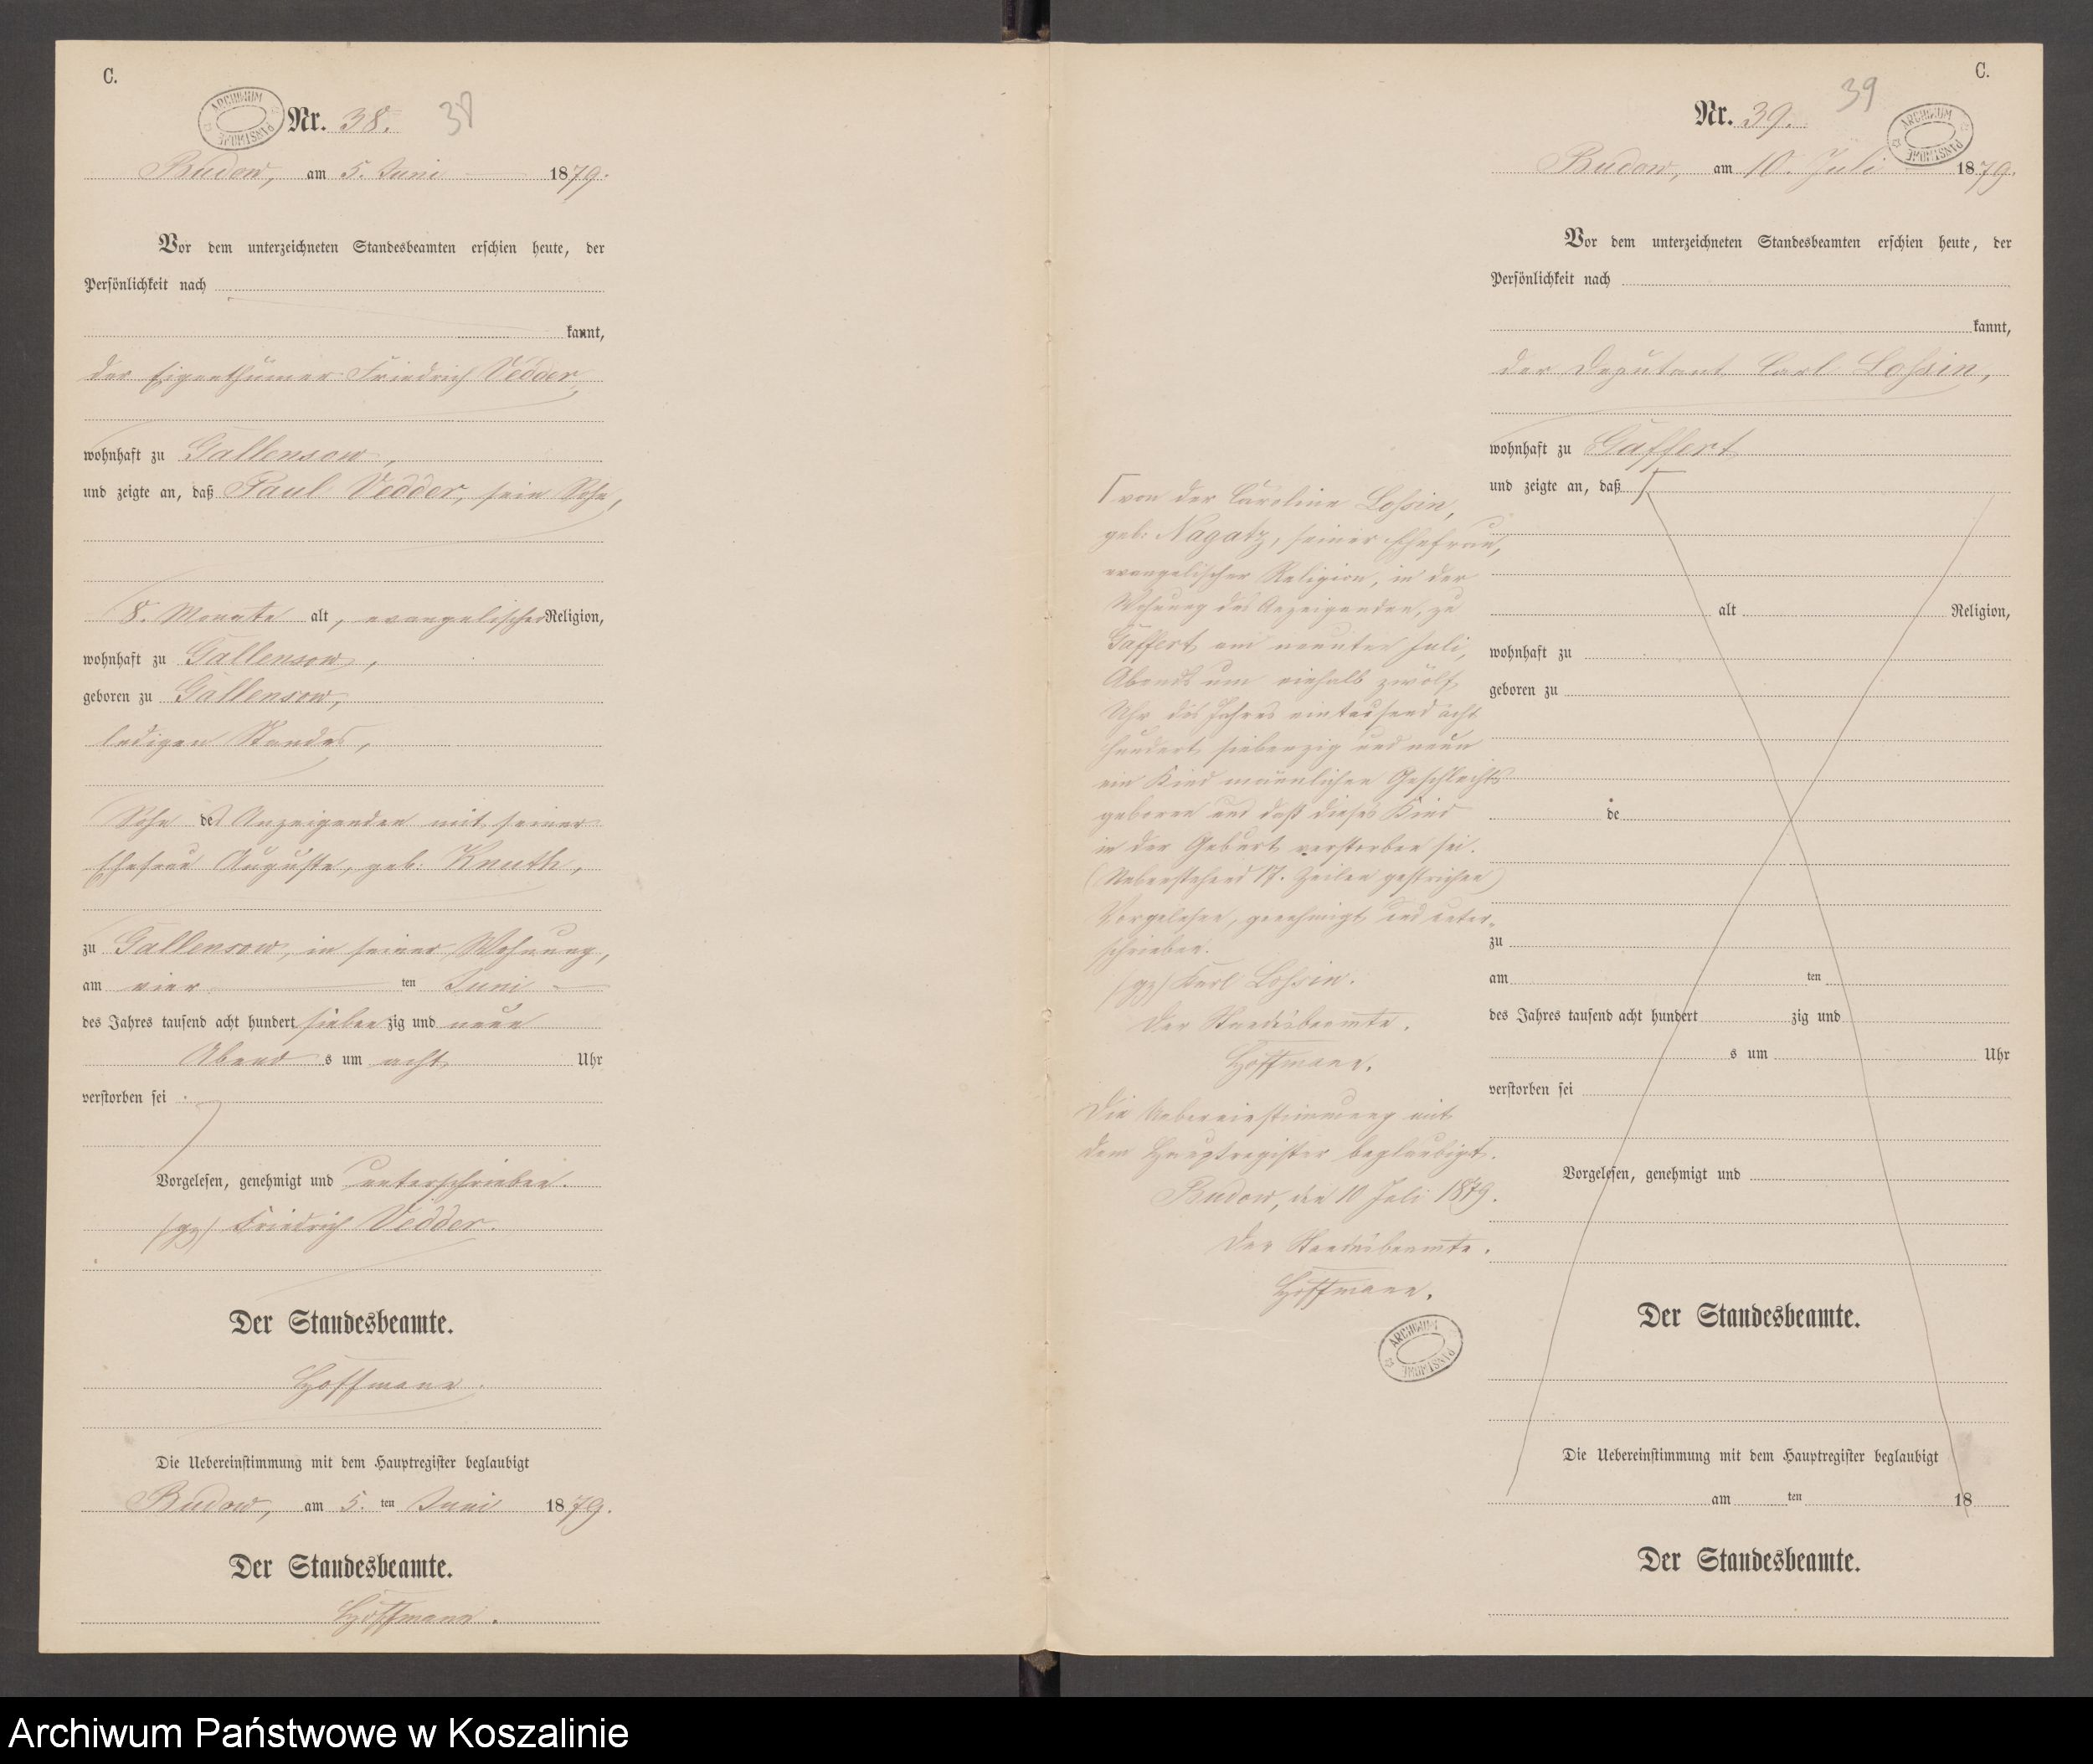 C.
ARCHIWUM PAŃSTWOWE
Nr. 38. 38
Budow, am 5. Juni 1879.
Vor dem unterzeichneten Standesbeamten erschien heute, der
Persönlichkeit nach
kannt,
der Eigenthümer Friedrich Vedder,
wohnhaft zu Gallensow,
und zeigte an, daß Paul Vedder, sein Sohn,
8. Monate alt, evangelischer Religion,
wohnhaft zu Gallensow,
geboren zu Gallensow,
ledigen Standes,
Sohn des Anzeigenden mit seiner
Ehefrau Auguste, geb. Knuth,
zu Gallensow, in seiner Wohnung,
am vier ten Juni
des Jahres tausend acht hundert sieben zig und neun
Abend s um acht Uhr
verstorben sei.
Vorgelesen, genehmigt und unterschrieben.
(gz) Friedrich Vedder.
Der Standesbeamte.
Hoffmann.
Die Uebereinstimmung mit dem Hauptregister beglaubigt
Budow, am 5. ten Juni 1879.
Der Standesbeamte.
Hoffmann.
C.
Nr. 39. 39
ARCHIWUM PAŃSTWOWE
Budow, am 10. Juli 1879.
Vor dem unterzeichneten Standesbeamten erschien heute, der
Persönlichkeit nach
kannt,
der Deputant Carl Loßin,
wohnhaft zu Gaffert
und zeigte an, daß
von der Caroline Loßin,
geb. Nagatz, seiner Ehefrau,
evangelischer Religion, in der
Wohnung des Anzeigenden, zu
Gaffert am neunten Juli,
Abends um einhalb zwölf
Uhr des Jahres eintausend acht
hundert siebenzig und neun
ein Kind männlichen Geschlechts
geboren und daß dieses Kind
in der Geburt verstorben sei.
(Nebenstehend 17. Zeilen gestrichen)
Vorgelesen, genehmigt und unter-
schrieben.
(gz) Karl Loßin.
Der Standesbeamte.
Hoffmann.
Die Uebereinstimmung mit
dem Hauptregister beglaubigt.
Budow, den 10 Juli 1879.
Der Standesbeamte.
Hoffmann.
ARCHIWUM PAŃSTWOWE
alt Religion,
wohnhaft zu
geboren zu
de
zu
am ten
des Jahres tausend acht hundert zig und
s um Uhr
verstorben sei
Vorgelesen, genehmigt und
Der Standesbeamte.
Die Uebereinstimmung mit dem Hauptregister beglaubigt
am ten 18
Der Standesbeamte.
Archiwum Państwowe w Koszalinie